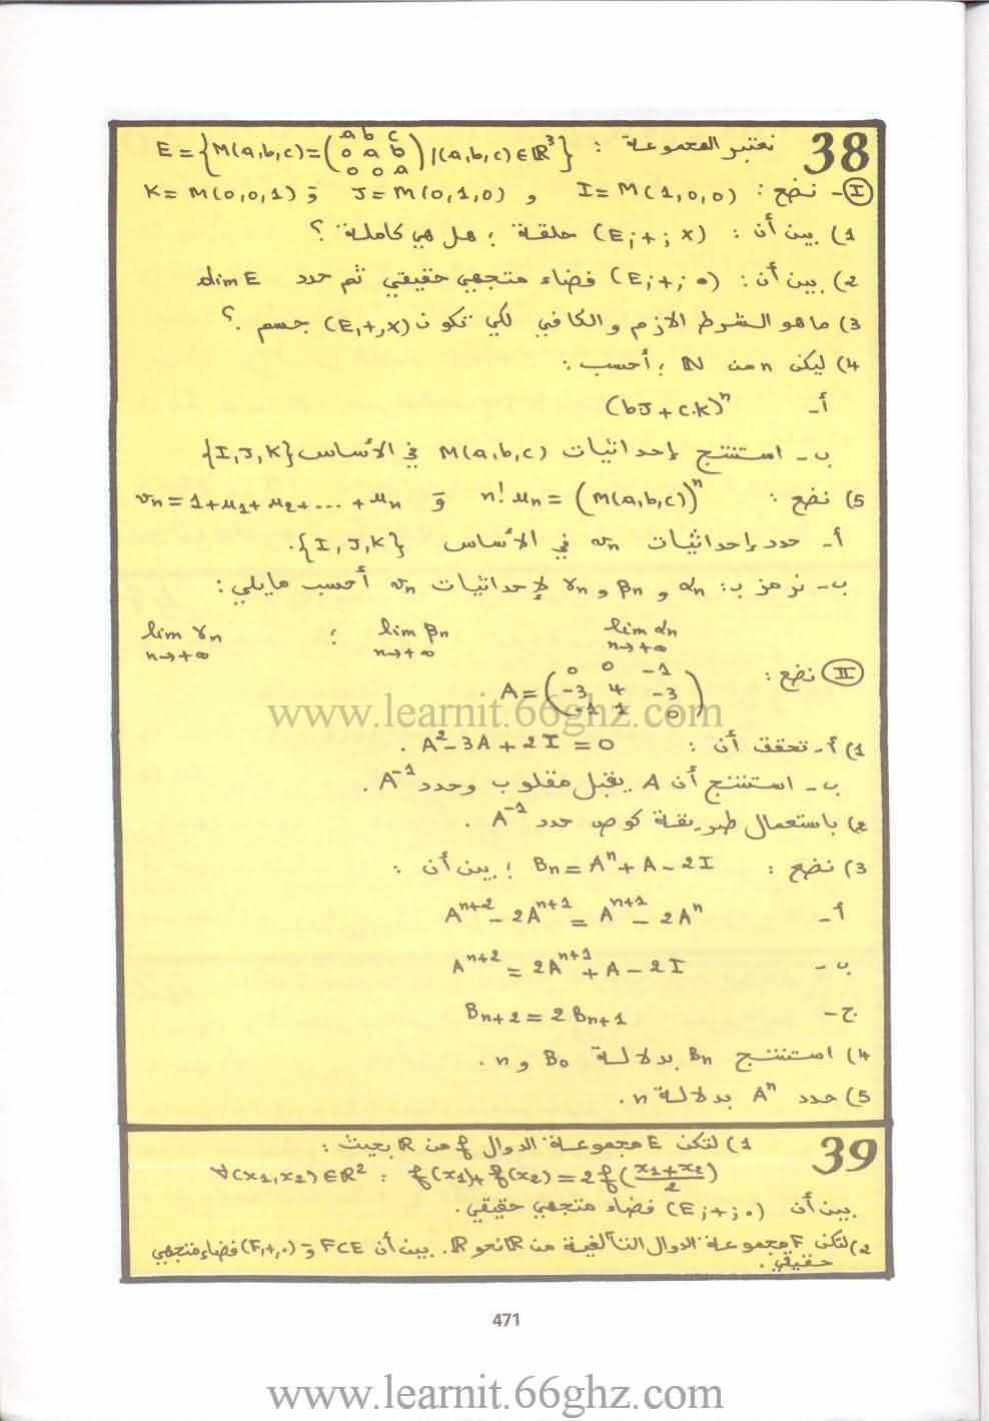 38 نعتبر المجموعة : E = {M(a,b,c) = (a b c / 0 a b / 0 0 a) / (a,b,c) ∈ ℝ³}
I - نضع : I = M(1,0,0) و J = M(0,1,0) وَ K = M(0,0,1)
1) بين أن : (E;+;×) حلقة ؛ هل هي كاملة ؟
2) بين أن : (E;+;•) فضاء متجهي حقيقي ثم حدد dim E
3) ما هو الشرط الازم والكافي لكي تكون (E,+,×) جسم ؟
4) ليكن n من ℕ ؛ أحسب :
أ- (bJ + c.K)ⁿ
ب - استنتج إحداثيات M(a,b,c) في الأساس {I,J,K}
5) نضع : n! uₙ = (M(a,b,c))ⁿ وَ vₙ = 1 + u₁ + u₂ + ... + uₙ
أ- حدد إحداثيات vₙ في الأساس {I,J,K}.
ب- نرمز بـ: αₙ و βₙ و γₙ لإحداثيات vₙ أحسب مايلي :
lim αₙ n→+∞ lim βₙ n→+∞ ; lim γₙ n→+∞
II نضع : A = (0 0 -1 / -3 4 -3 / -1 1 0)
www.learnit.66ghz.com
1) أ- تحقق أن : A² - 3A + 2I = 0 .
ب - استنتج أن A يقبل مقلوب وحدد A⁻¹ .
2) باستعمال طريقة كوص حدد A⁻¹ .
3) نضع : Bₙ = Aⁿ + A - 2I ؛ بين أن :
أ- Aⁿ⁺² - 2Aⁿ⁺¹ = Aⁿ⁺¹ - 2Aⁿ
ب - Aⁿ⁺² = 2Aⁿ⁺¹ + A - 2I
ج- Bₙ₊₂ = 2Bₙ₊₁
4) استنتج Bₙ بدلالة B₀ و n .
5) حدد Aⁿ بدلالة n .
39 1) لتكن E مجموعة الدوال f من ℝ بحيث :
∀(x₁,x₂) ∈ ℝ² : f(x₁) + f(x₂) = 2f((x₁+x₂)/2)
بين أن (E;+;.) فضاء متجهي حقيقي .
2) لتكن F مجموعة الدوال التآلفية من ℝ نحو ℝ. بين أن F⊂E وَ (F,+,.) فضاء متجهي
حقيقي .
471
www.learnit.66ghz.com